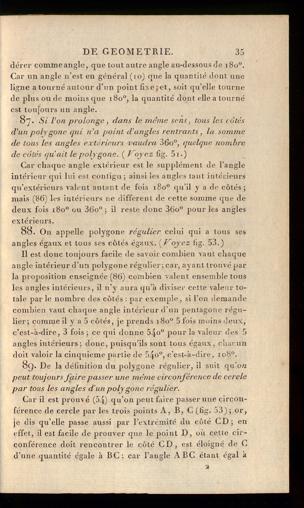 DE GEOMETRIE. 35
dérer comme angle, que tout autre angle au-dessous de 180°.
Car un angle n'est en général (10) que la quantité dont une
ligne a tourné autour d'un point fixe; et, soit qu'elle tourne
de plus ou de moins que 180°, la quantité dont elle a tourné
est toujours un angle.
87. Si l'on prolonge, dans le même sens, tous les côtés
d'un polygone qui n'a point d'angles rentrants, la somme
de tous les angles extérieurs vaudra 360°, quelque nombre
de côtés qu'ait le polygone. (Voyez fig. 51.)
Car chaque angle extérieur est le supplément de l'angle
intérieur qui lui est contigu; ainsi les angles tant intérieurs
qu'extérieurs valent autant de fois 180° qu'il y a de côtés;
mais (86) les intérieurs ne different de cette somme que de
deux fois 180° ou 360°; il reste donc 360° pour les angles
extérieurs.
88. On appelle polygone régulier celui qui a tous ses
angles égaux et tous ses côtés égaux. (Voyez fig. 53.)
Il est donc toujours facile de savoir combien vaut chaque
angle intérieur d'un polygone régulier; car, ayant trouvé par
la proposition enseignée (86) combien valent ensemble tous
les angles intérieurs, il n'y aura qu'à diviser cette valeur to-
tale par le nombre des côtés: par exemple, si l'on demande
combien vaut chaque angle intérieur d'un pentagone régu-
lier; comme il y a 5 côtés, je prends 180° 5 fois moins deux,
c'est-à-dire, 3 fois; ce qui donne 540° pour la valeur des 5
angles intérieurs; donc, puisqu'ils sont tous égaux, chacun
doit valoir la cinquieme partie de 540°, c'est-à-dire, 108°.
89. De la définition du polygone régulier, il suit qu'on
peut toujours faire passer une même circonférence de cercle
par tous les angles d'un polygone régulier.
Car il est prouvé (54) qu'on peut faire passer une circon-
férence de cercle par les trois points A, B, C (fig. 53); or,
je dis qu'elle passe aussi par l'extrémité du côté CD; en
effet, il est facile de prouver que le point D, où cette cir-
conférence doit rencontrer le côté CD, est éloigné de C
d'une quantité égale à BC: car l'angle ABC étant égal à